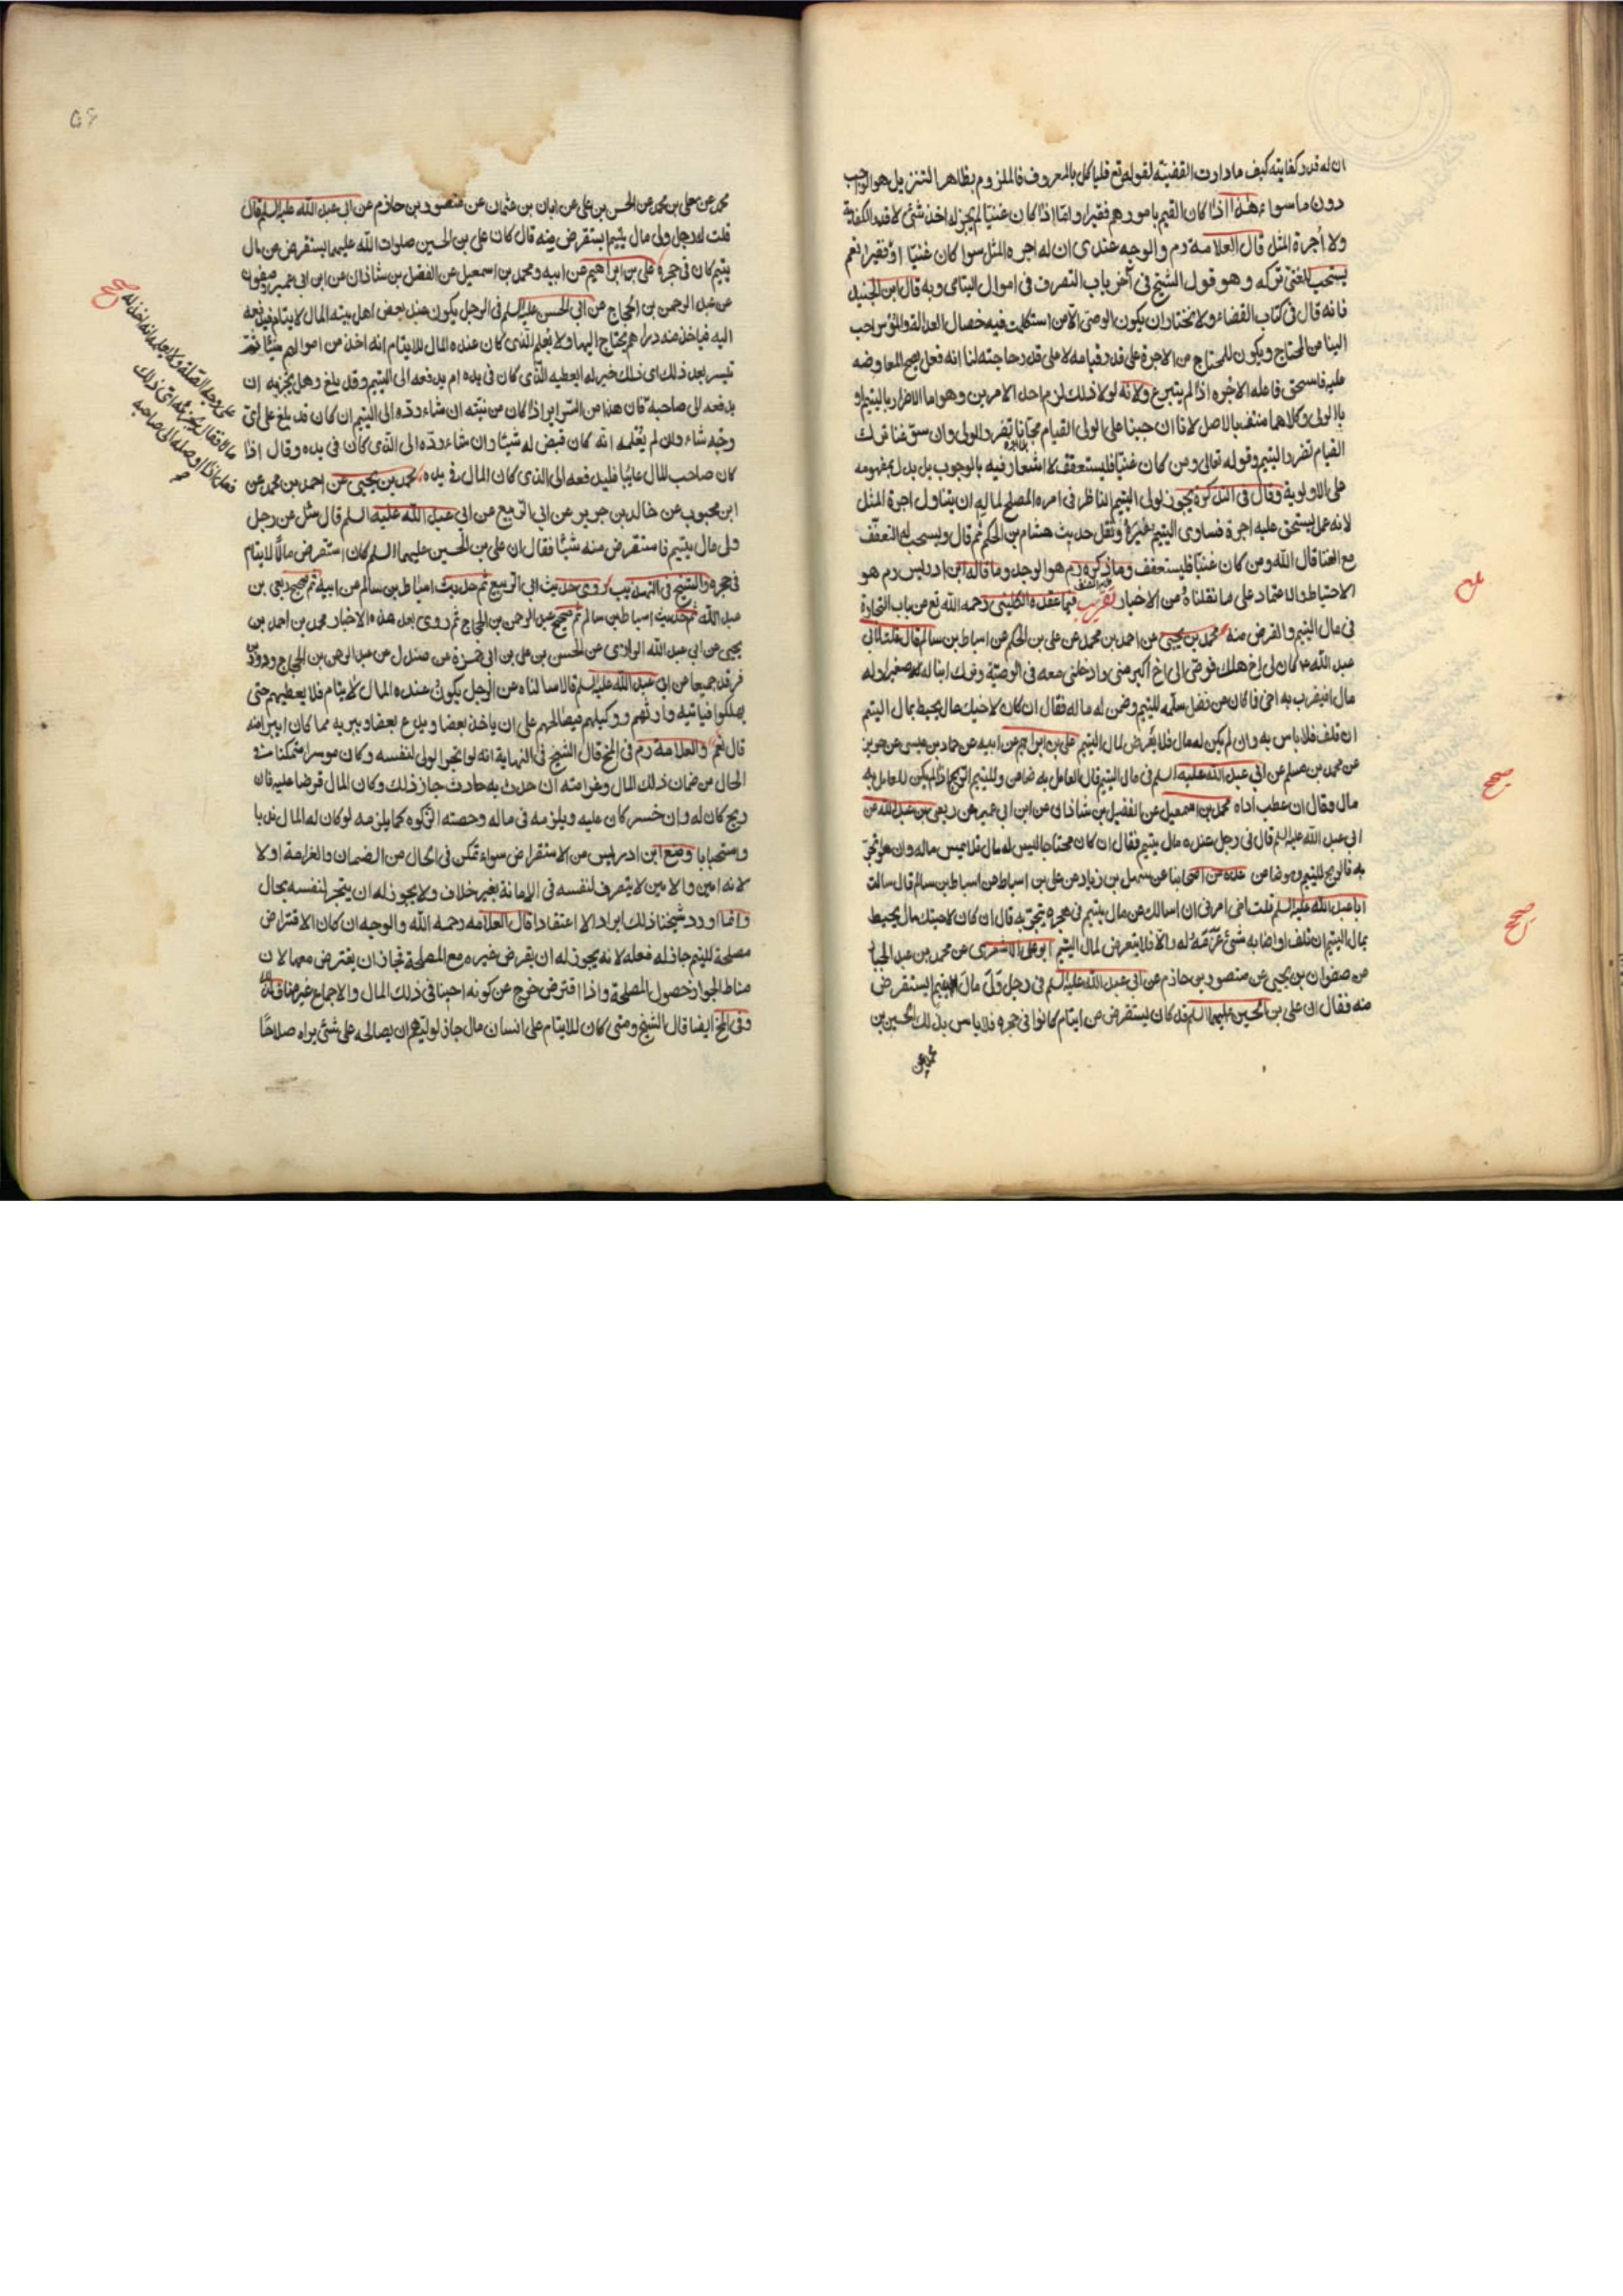 ان له قدر كفايته كيف ما دارت القضيّة لقوله تع فلياكل بالمعروف فالملزوم بظاهر التنزيل هو الواجب
دون ما سواه هذا اذا كان القيم بامورهم فقيرا واما اذا كان غنيّا لم يجز له اخذ شئ لا قدر الكفاية
ولا أجرة المثل قال العلامة رم والوجه عندى ان له اجره المثل سوا كان غنيّا او فقيرا نعم
يستحب للغنىّ تركه وهو قول الشيخ فى آخر باب التصرف فى اموال اليتامى وبه قال ابن الجنيد
فانه قال فى كتاب القضاء ولا نختار ان يكون الوصىّ الّا من استكملت فيه خصال العدالة والمؤسر احب
الينا من المحتاج ويكون للمحتاج من الاجرة على قدر قيامه لا على قدر حاجته لنا انه فعل يصح المعاوضه
عليه فاستحق فاعله الاجره اذا لم يتبرع ولانه لولا ذلك لزم احد الامرين وهو اما الاضرار باليتيم او
بالولى وكلاهما منتف بالاصل لانا ان جبرنا على الولى القيام مجّانا تضرر الولى وان سوّغنا ترك
القيام تضرر اليتيم وقوله تعالى ومن كان غنيّا فليستعفف لا اشعار فيه بالوجوب بل يدل بمفهومه
على الاولوية وقال فى التذكرة يجوز لولى اليتيم الناظر فى امره المصلح لماله ان يتناول اجرة المثل
لانه عمل يستحق عليه اجرة فساوى اليتيم غيره ونقل حديث هشام بن الحكم ثم قال ويستحب له التعفّف
مع الغنا قال الله ومن كان غنيّا فليستعفف وما ذكره رم هو الوجه وما قاله ابن ادريس رم هو
الاحتياط والاعتماد على ما نقلناه من الاخبار تقريب فيما عقده الكلينى رحمه الله تع من باب التجارة
فى مال اليتيم والقرض منه محمد بن يحيى عن احمد بن محمد عن على بن الحكم عن اسباط بن سالم قال قلت لابى
عبد الله ع كان لى اخ هلك فوصّى الى اخ اكبر منى وادخلنى معه فى الوصيّة وترك ابنا له صغيرا وله
مال افيضرب به اخى فما كان من فضل سلّمه لليتيم وضمن له ماله فقال ان كان لاخيك مال يحيط بمال اليتيم
ان تلف فلا باس به وان لم يكن له مال فلا يعرّض لمال اليتيم على بن ابراهيم عن ابيه عن حماد بن عيسى عن حريز
عن محمد بن مسلم عن ابى عبد الله عليه السلم فى مال اليتيم قال العامل به ضامن ولليتيم الربح اذا لم يكن للعامل به
مال وقال ان عطب اداه محمد بن اسمعيل عن الفضل بن شاذان عن ابن ابى عمير عن ربعى بن عبد الله عن
ابى عبد الله عليه السلم قال فى رجل عنده مال يتيم فقال ان كان محتاجا ليس له مال فلا يمس ماله وان هو اتجر
به فالربح لليتيم وهو ضامن عدة من اصحابنا عن سهل بن زياد عن على بن اسباط عن اسباط بن سالم قال سالت
ابا عبد الله عليه السلم قلت اخى امرنى ان اسالك عن مال يتيم فى حجره يتجر به قال ان كان لاخيك مال يحيط
بمال اليتيم ان تلف او اصابه شئ غرّمه له والّا فلا يتعرض لمال اليتيم ابو على الاشعرى عن محمد بن عبد الجبار
عن صفوان بن يحيى عن منصور بن حازم عن ابى عبد الله عليه السلم فى رجل ولى مال اليتيم ايستقرض
منه فقال ان على بن الحسين عليهما السلم قد كان يستقرض من ايتام كانوا فى حجره فلا باس بذلك الحسين بن
محمد عن
صح
صح
محمد عن معلى بن محمد عن الحسن بن على عن ابان بن عثمان عن منصور بن حازم عن ابى عبد الله عليه السلم قال
قلت له رجل ولى مال يتيم ايستقرض منه قال كان على بن الحسين صلوات الله عليهما يستقرض من مال
يتيم كان فى حجره على بن ابراهيم عن ابيه ومحمد بن اسمعيل عن الفضل بن شاذان عن ابن ابى عمير وصفوان
عن عبد الرحمن بن الحجاج عن ابى الحسن عليه السلم فى الرجل يكون عند بعض اهل بيته المال لايتام فيدفعه
اليه فياخذ منه دراهم يحتاج اليها ولا يُعلم الذى كان عنده المال للايتام انه اخذ من اموالهم شيئا ثم
تيسر بعد ذلك اى ذلك خير له ايعطيه الذى كان فى يده ام يدفعه الى اليتيم وقد بلغ وهل يجزيه ان
يدفعه الى صاحبه
على وجه الصلة ولا يعلمه انه اخذ له
مالا فقال يجزئه اى ذلك
فعل اذا اوصله الى صاحبه
صح
فان هذا من السّرائر اذا كان من نيّته ان شاء ردّه الى اليتيم ان كان قد بلغ على اىّ
وجه شاء وان لم يُعْلمه انّه كان قبض له شيئا وان شاء ردّه الى الذى كان فى يده وقال اذا
كان صاحب المال غائبا فليدفعه الى الذى كان المال فى يده محمد بن يحيى عن احمد بن محمد عن
ابن محبوب عن خالد بن جرير عن ابى الربيع عن ابى عبد الله عليه السلم قال سئل عن رجل
ولى مال يتيم فاستقرض منه شيئا فقال ان على بن الحسين عليهما السلم كان استقرض مالا لايتام
فى حجره والشيخ فى التهذيب روى حديث ابى الربيع ثم حديث اسباط بن سالم عن ابيه ثم صحيح ربعى بن
عبد الله ثم حديث اسباط بن سالم ثم صحيح عبد الرحمن بن الحجاج ثم روى بعد هذه الاخبار محمد بن احمد بن
يحيى عن ابى عبد الله الرازى عن الحسن بن على بن ابى حمزة عن صندل عن عبد الرحمن بن الحجاج وداود بن
فرقد جميعا عن ابى عبد الله عليه السلم قالا سالناه عن الرجل يكون عنده المال لايتام فلا يعطيهم حتى
يهلكوا فياتيه وارثهم ووكيلهم فيصالحهم على ان ياخذ بعضا ويدع بعضا ويبريه مما كان ايبرا منه
قال نعم والعلامة رم فى المخ قال الشيخ فى النهاية انه لو اتجر الولى لنفسه وكان موسرا متمكنا فى
الحال من ضمان ذلك المال وغرامته ان حدث به حادث جاز ذلك وكان المال قرضا عليه فان
ربح كان له وان خسر كان عليه ويلزمه فى ماله وحصته الزكوه كما يلزمه لو كان له المال ندبا
واستحبابا ومنع ابن ادريس من الاستقراض سواء تمكن فى الحال من الضمان والغرامة او لا
لانه امين والامين لا يتصرف لنفسه فى الامانة بغير خلاف ولا يجوز له ان يتجر لنفسه بحال
وانما اورد شيخنا ذلك ايرادا لا اعتقادا قال العلامه رحمه الله والوجه ان كان الاقتراض
مصلحة لليتيم جاز له فعله لانه يجوز له ان يقرض غيره مع المصلحة فجاز ان يقترض معها لان
مناط الجواز حصول المصلحة واذا اقترض خرج عن كونه امينا فى ذلك المال والاجماع غير مناف له
وفى المخ ايضا قال الشيخ ومتى كان للايتام على انسان مال جاز لوليّهم ان يصالحه على شئ يراه صلاحًا